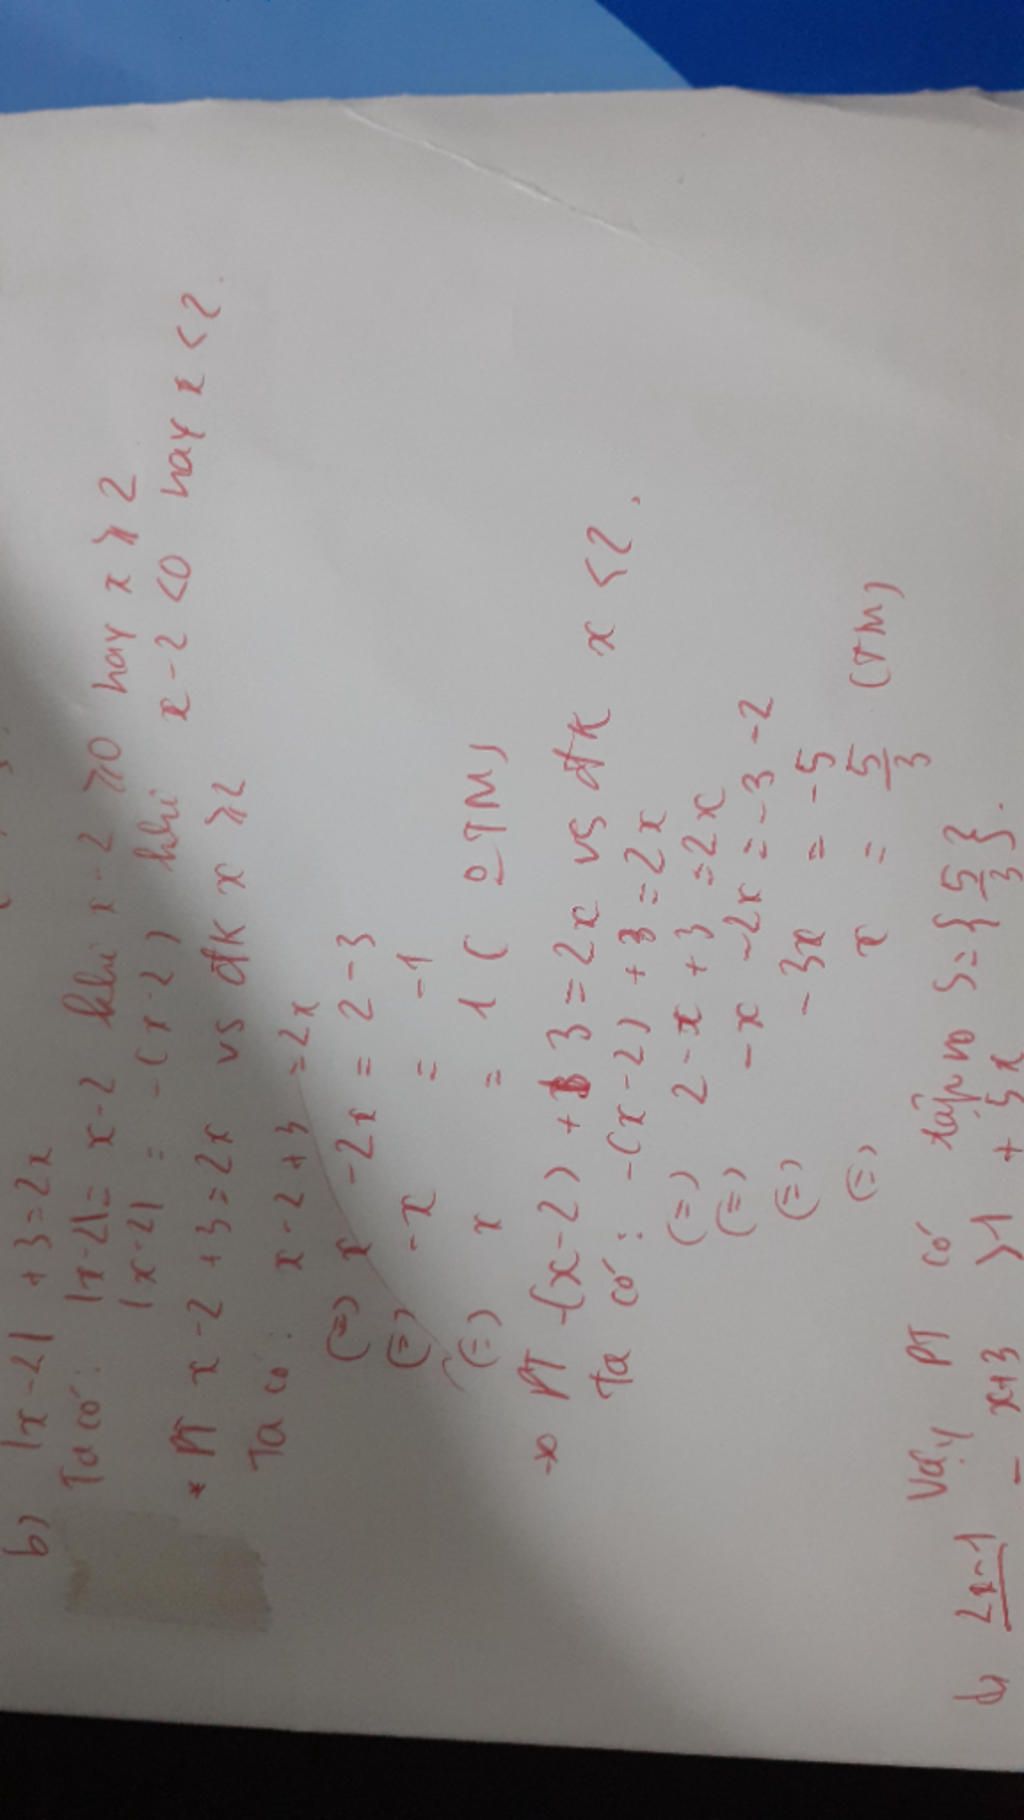 b) |x-2| +3=2x
Ta có: |x-2|= x-2 khi x-2 ⩾0 hay x ⩾ 2
|x-2| = -(x-2) khi x-2 <0 hay x <2.
* PT x-2 +3=2x vs đk x ⩾2
Ta có: x-2+3 =2x
(=) x -2x = 2 -3
(=) -x = -1
(=) x = 1 ( 0TM)
PT -(x-2) + 3 = 2x vs đk x <2.
Ta có: -(x-2) +3 =2x
(=) 2 -x +3 =2x
(=) -x -2x = -3 -2
(=) -3x = -5
(=) x = 5/3 (TM)
Vậy PT có tập no S={5/3}.
2x-1 - x+3 >1 + 5x